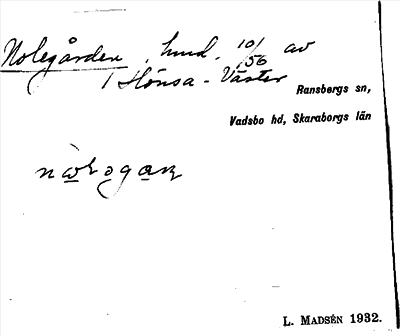 Nolegården, hmd. 10/156 av
1 Hönsa-Väster
Ransbergs sn,
Vadsbo hd, Skaraborgs län
L. MADSÉN 1932.